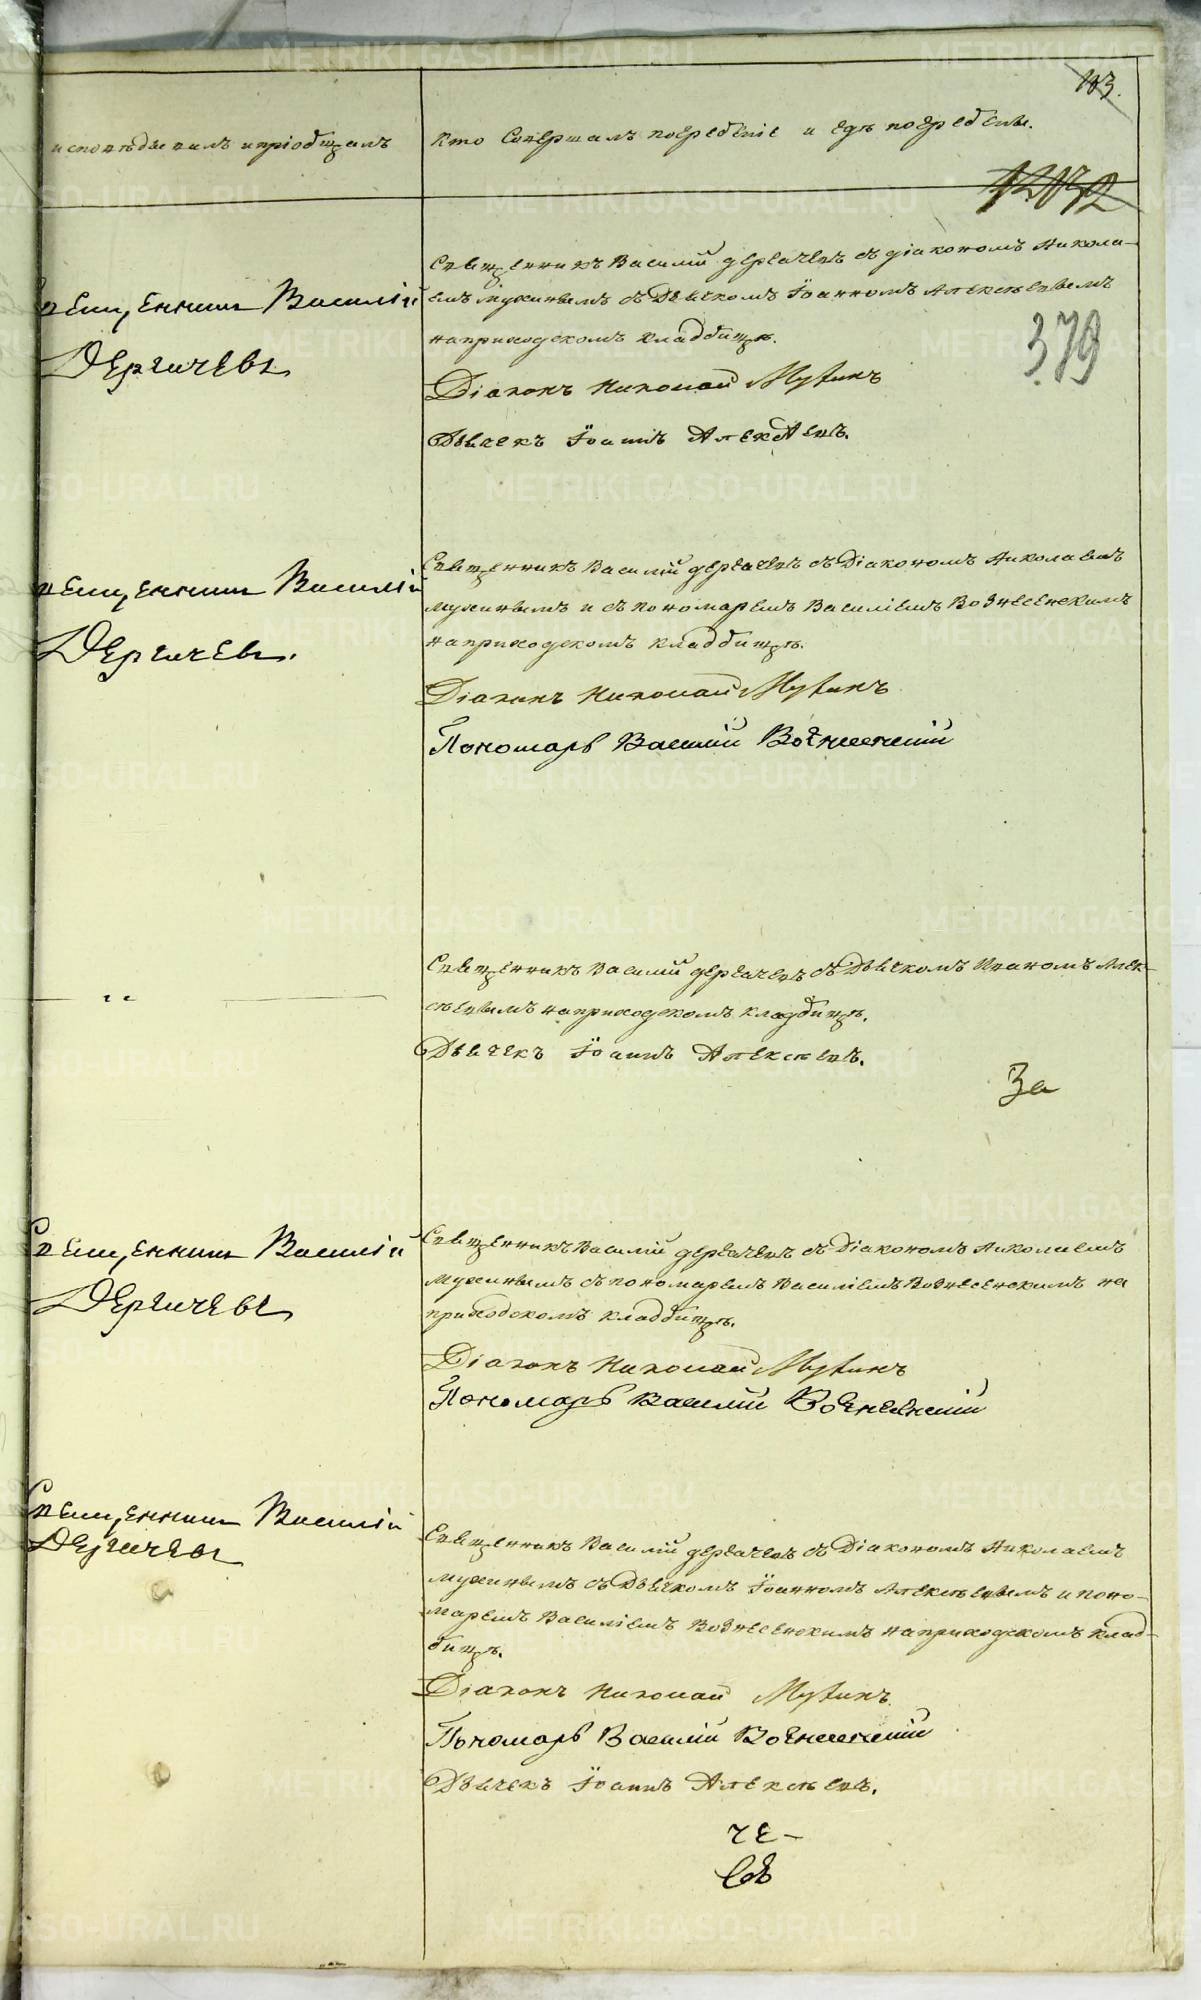 103.
исповѣдывалъ и пріобщалъ
Кто Совершалъ погребеніе и гдѣ погребены.
379
Священникъ Василій
Дергачевъ
Священникъ Василій дергачевъ съ діакономъ Никола-
емъ мухинымъ съ Дьячкомъ Іоанномъ Алексѣевымъ
на приходскомъ кладбищѣ.
Діаконъ Николай Мухинъ
Дьячекъ Іоаннъ Алексѣевъ.
Священникъ Василій
Дергачевъ.
Священникъ Василій дергачевъ съ Діакономъ Николаемъ
мухинымъ и съ пономаремъ Василіемъ Вознесенскимъ
на приходскомъ кладбищѣ.
Діаконъ Николай Мухинъ
Пономарь Василій Вознесенскій
Священникъ Василій дергачевъ съ Дьячкомъ Иваномъ Алек-
сѣевымъ на приходскомъ кладбищѣ.
Дьячекъ Іоаннъ Алексѣевъ.
За
Священникъ Василій
Дергачевъ
Священникъ Василій дергачевъ съ Діакономъ Николаемъ
мухинымъ съ пономаремъ Василіемъ Вознесенскимъ на
приходскомъ кладбищѣ.
Діаконъ Николай Мухинъ
Пономарь Василій Вознесенскій
Священникъ Василій
Дергачевъ
Священникъ Василій дергачевъ съ Діакономъ Николаемъ
мухинымъ съ Дьячкомъ Іоанномъ Алексѣевымъ и поно-
маремъ Василіемъ Вознесенскимъ на приходскомъ клад-
бищѣ.
Діаконъ Николай Мухинъ
Пономарь Василій Вознесенскій
Дьячекъ Іоаннъ Алексѣевъ.
че-
METRIKI.GASO-URAL.RU